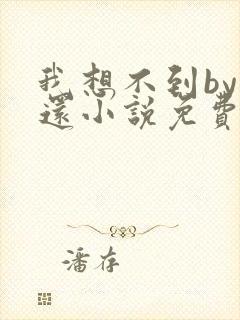 我想不到by
還小說免費
潘存